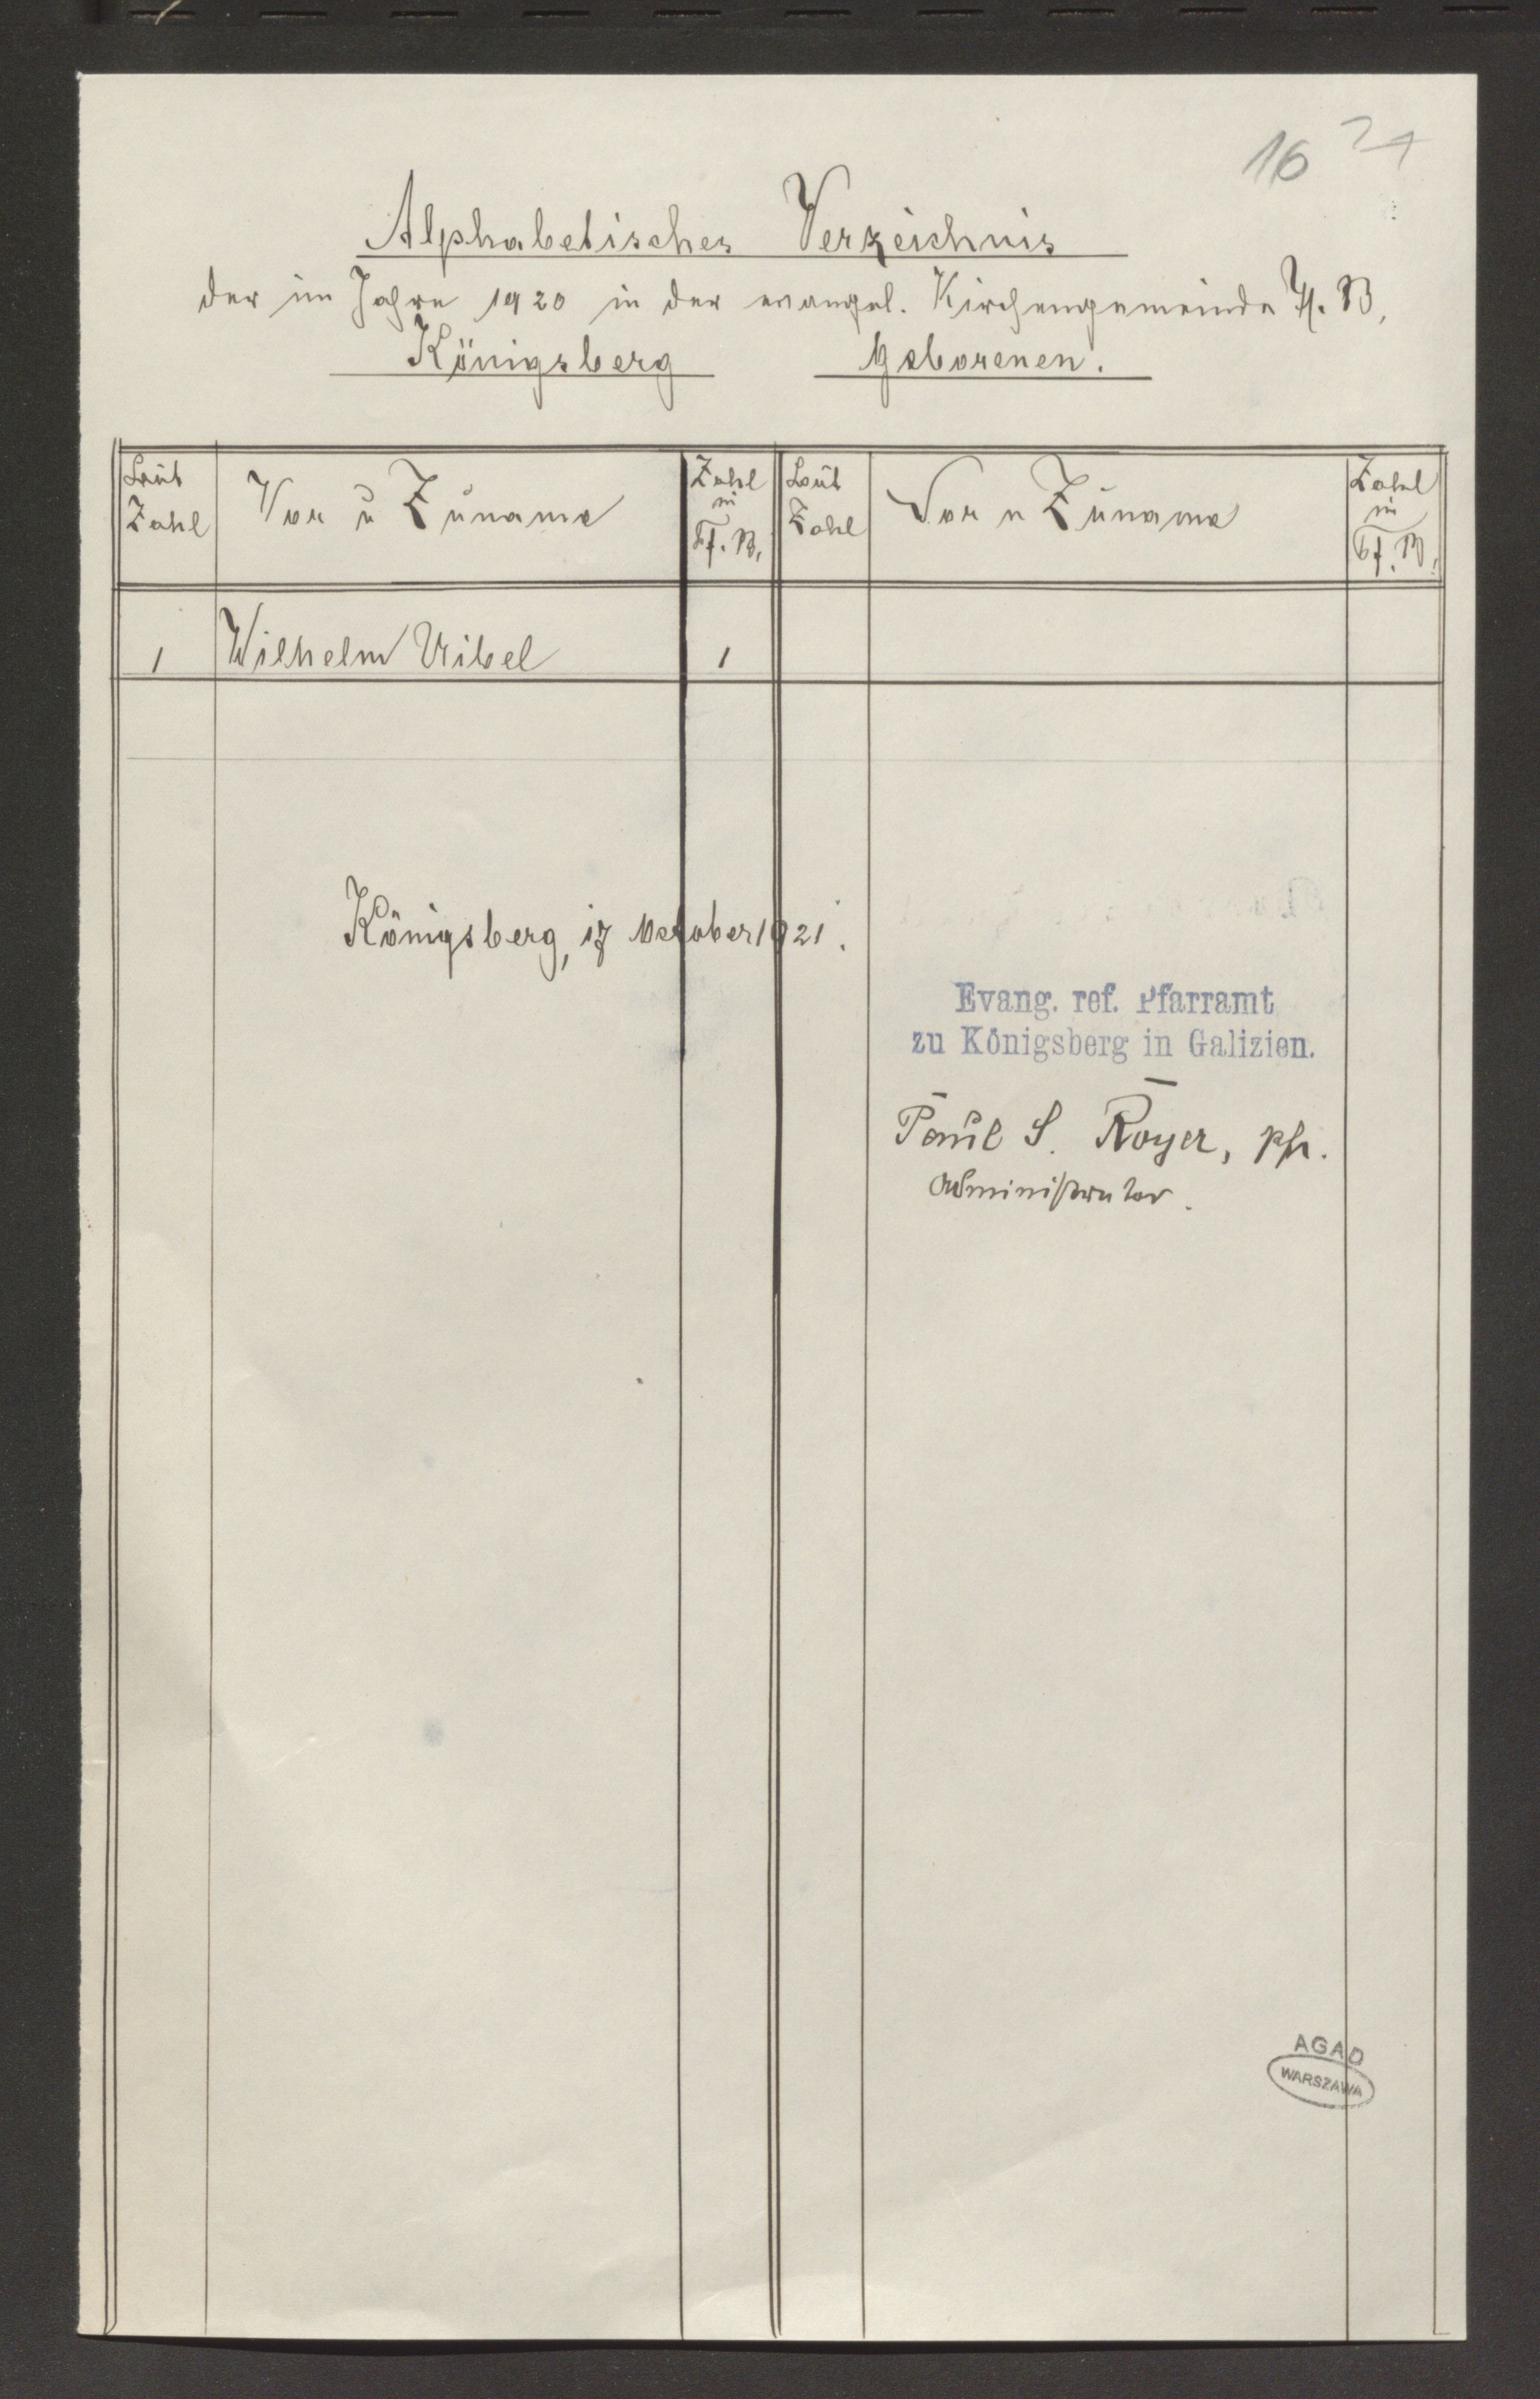 16 21
Alphabetisches Verzeichnis
der im Jahre 1920 in der evangel. Kirchengemeinde H. B.
Königsberg Geborenen.
Zahl Vor u Zuname Zahl in Tf. B. Zahl Vor u Zuname Zahl in Tf. B.
1 Wilhelm Uibel 1
Königsberg, 17 October 1921.
Evang. ref. Pfarramt
zu Königsberg in Galizien.
Paul S. Royer, Pfr.
Administrator.
AGAD
WARSZAWA